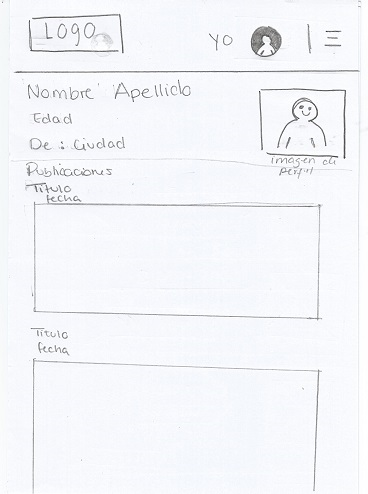 LOGO
YO
Nombre Apellido
Edad
De : Ciudad
imagen de
perfil
Publicaciones
Titulo
fecha
Titulo
fecha